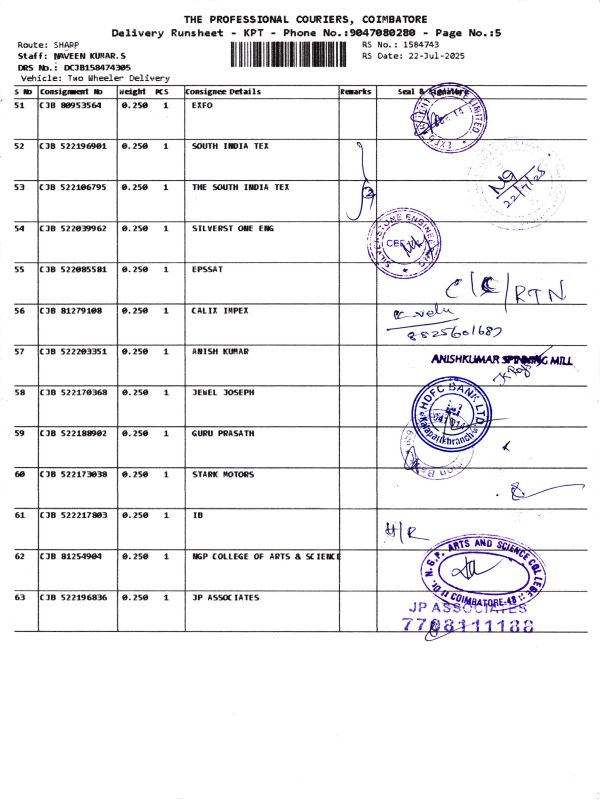 THE PROFESSIONAL COURIERS, COIMBATORE
Delivery Runsheet - KPT - Phone No.:9047080280 - Page No.:5
Route: SHARP RS No.: 1584743
Staff: NAVEEN KUMAR.S RS Date: 22-Jul-2025
DRS No.: DCJB158474305
Vehicle: Two Wheeler Delivery
S No Consignment No Weight PCS Consignee Details Remarks Seal & Signature
51 CJB 80953564 0.250 1 EXFO
52 CJB 522196901 0.250 1 SOUTH INDIA TEX
22/7/25
53 CJB 522106795 0.250 1 THE SOUTH INDIA TEX
54 CJB 522039962 0.250 1 SILVERST ONE ENG
SILVERSTONE ENGINEERING
55 CJB 522085581 0.250 1 EPSSAT
C/C/RTN
56 CJB 81279108 0.250 1 CALIX IMPEX
velu
8825601687
57 CJB 522203351 0.250 1 ANISH KUMAR
ANISHKUMAR SPINNING MILL
58 CJB 522170368 0.250 1 JEWEL JOSEPH
HDFC BANK LTD
59 CJB 522188902 0.250 1 GURU PRASATH
60 CJB 522173038 0.250 1 STARK MOTORS
61 CJB 522217803 0.250 1 IB
H/R
62 CJB 81254904 0.250 1 NGP COLLEGE OF ARTS & SCIENCE
Dr. N.G.P. ARTS AND SCIENCE COLLEGE
COIMBATORE-48
63 CJB 522196836 0.250 1 JP ASSOCIATES
JP ASSOCIATES
7708111188